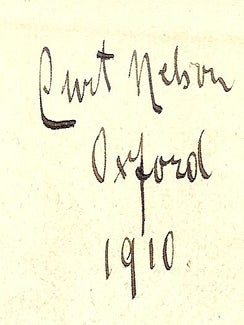 Curt Nelson
Oxford
1910.